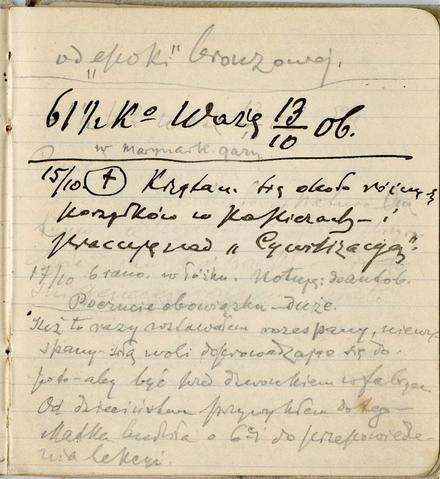 od „epoki" bronzowej.
61 1/2 Ko Ważę 13/10 ob.
w marynark.
15/10. † Krzątam się około
porządków w papierach – i
pracuję nad „Cywilizacją".
17/10 6 rano. w łóżku. Notuję: do autob.
Poczucie obowiązku – duże.
Ileż to razy wstawałem rozespany,
siłą woli doprowadzając się do
aby być przed dzwonkiem w fabryce.
Od dzieciństwa przywykłem do tego –
Matka budziła o 6ej do przepowiedze-
nia lekcyi.